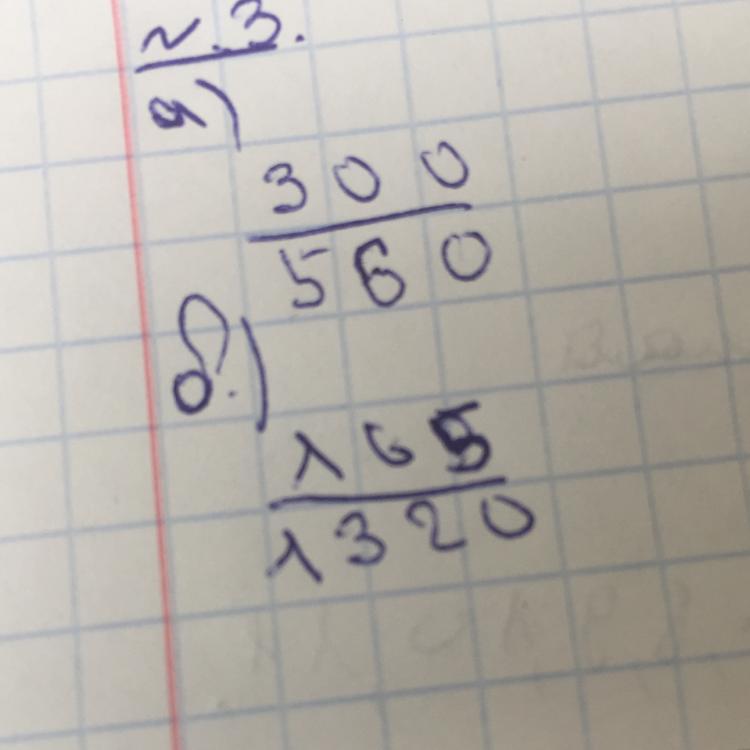 N.3.
а)
300
560
б.)
165
1320